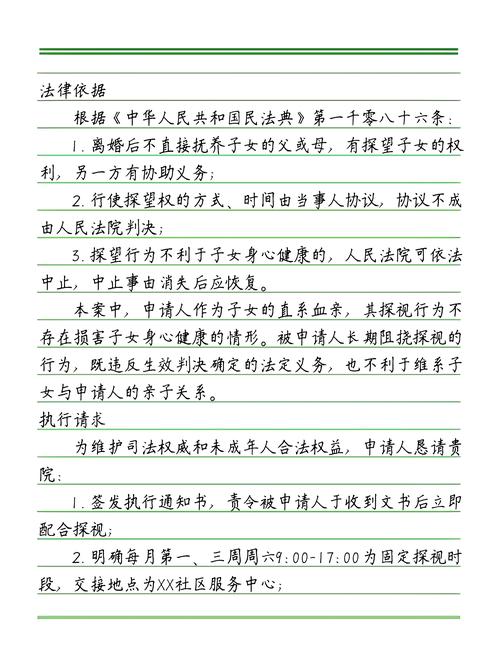 法律依据
根据《中华人民共和国民法典》第一千零八十六条：
1.离婚后不直接抚养子女的父或母，有探望子女的权
利，另一方有协助义务；
2.行使探望权的方式、时间由当事人协议，协议不成
由人民法院判决；
3.探望行为不利于子女身心健康的，人民法院可依法
中止，中止事由消失后应恢复。
本案中，申请人作为子女的直系血亲，其探视行为不
存在损害子女身心健康的情形。被申请人长期阻挠探视的
行为，既违反生效判决确定的法定义务，也不利于维系子
女与申请人的亲子关系。
执行请求
为维护司法权威和未成年人合法权益，申请人恳请贵
院：
1.签发执行通知书，责令被申请人于收到文书后立即
配合探视；
2.明确每月第一、三周周六9:00-17:00为固定探视时
段，交接地点为XX社区服务中心；